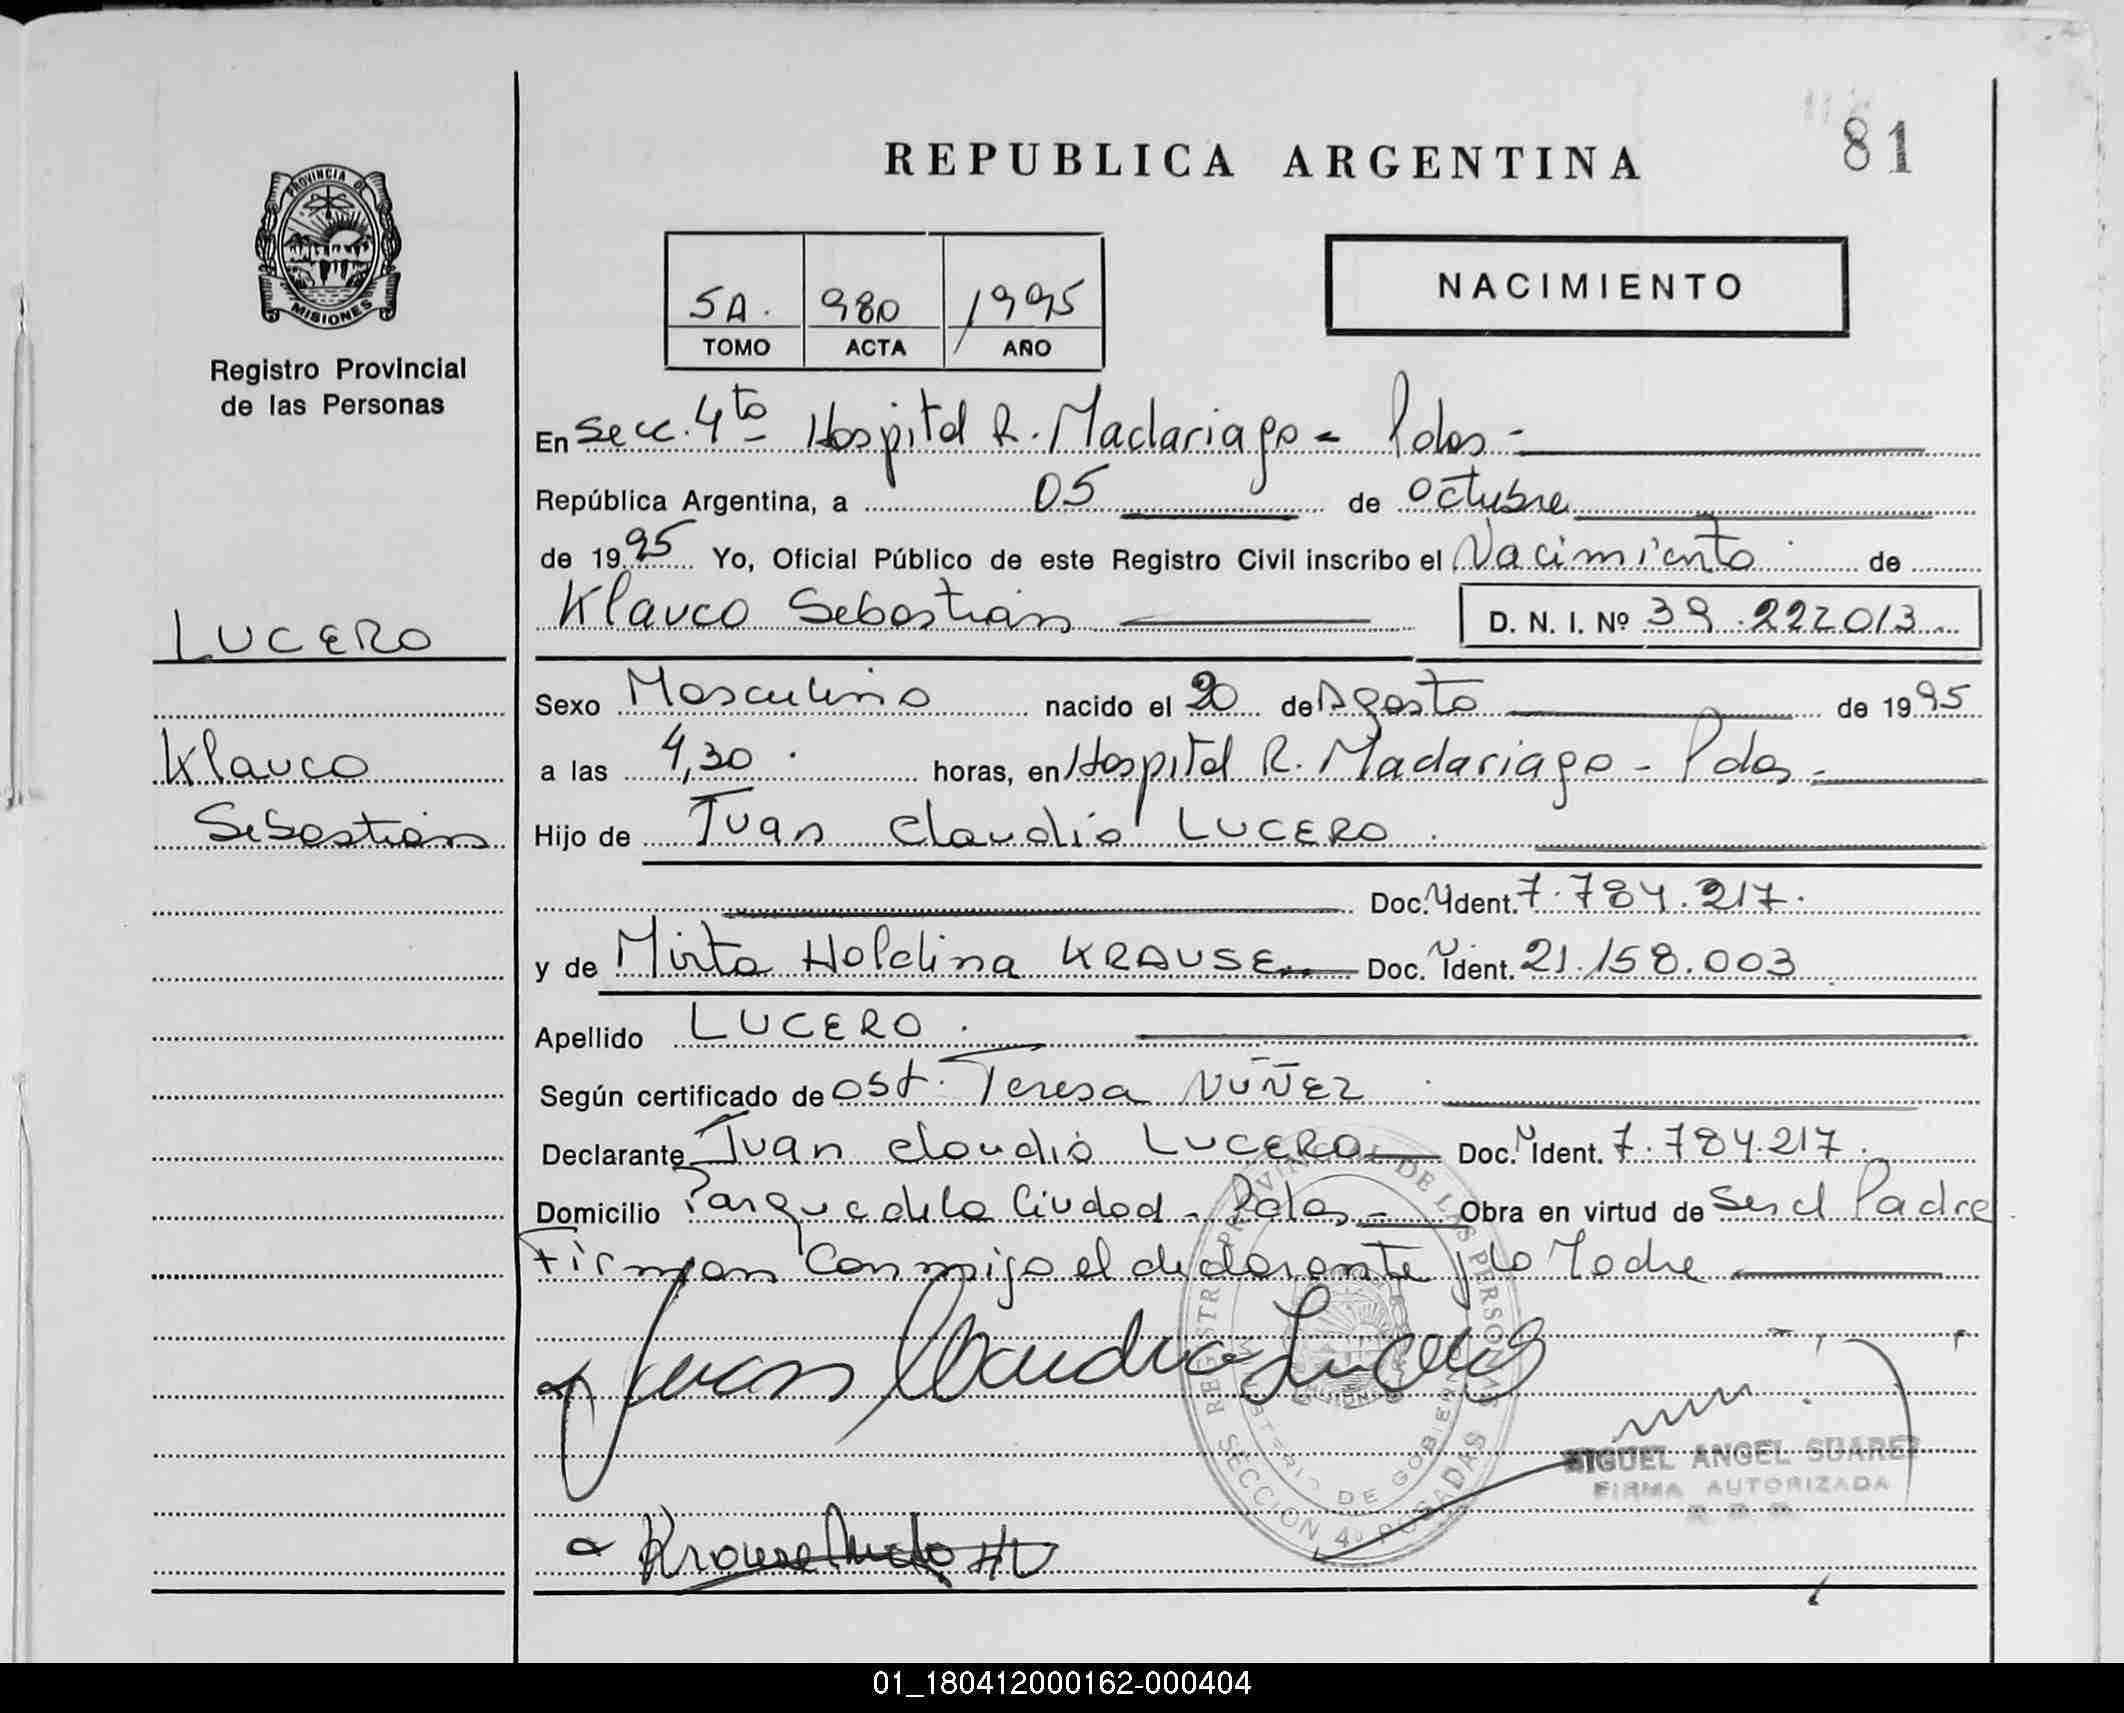 REPUBLICA ARGENTINA
81
PROVINCIA DE
MISIONES
Registro Provincial
de las Personas
5A. 980 1995
TOMO ACTA AÑO
NACIMIENTO
En Secc. 4to Hospital R. Madariaga - Pdas -
República Argentina, a 05 de Octubre
de 1995 Yo, Oficial Público de este Registro Civil inscribo el Nacimiento de
Klauco Sebastián D. N. I. Nº 39.222013
LUCERO
Sexo Masculino nacido el 20 de Agosto de 1995
Klauco
a las 4,30 horas, en Hospital R. Madariaga - Pdas -
Sebastián
Hijo de Juan Claudio LUCERO
Doc. Ident. 7.784.217.
y de Mirta Holdina KRAUSE Doc. Ident. 21.158.003
Apellido LUCERO.
Según certificado de Ost. Teresa NUÑEZ
Declarante Juan Claudio LUCERO Doc. Ident. 7.784.217.
Domicilio Parque de la Ciudad - Pdas - Obra en virtud de ser el Padre
Firman conmigo el declarante y la Madre
Juan Claudio Lucero
REGISTRO PROVINCIAL DE LAS PERSONAS
MINISTERIO DE GOBIERNO
SECCION 4ª POSADAS
MIGUEL ANGEL SUAREZ
FIRMA AUTORIZADA
R. P. P.
Krause Mirta H
01_180412000162-000404